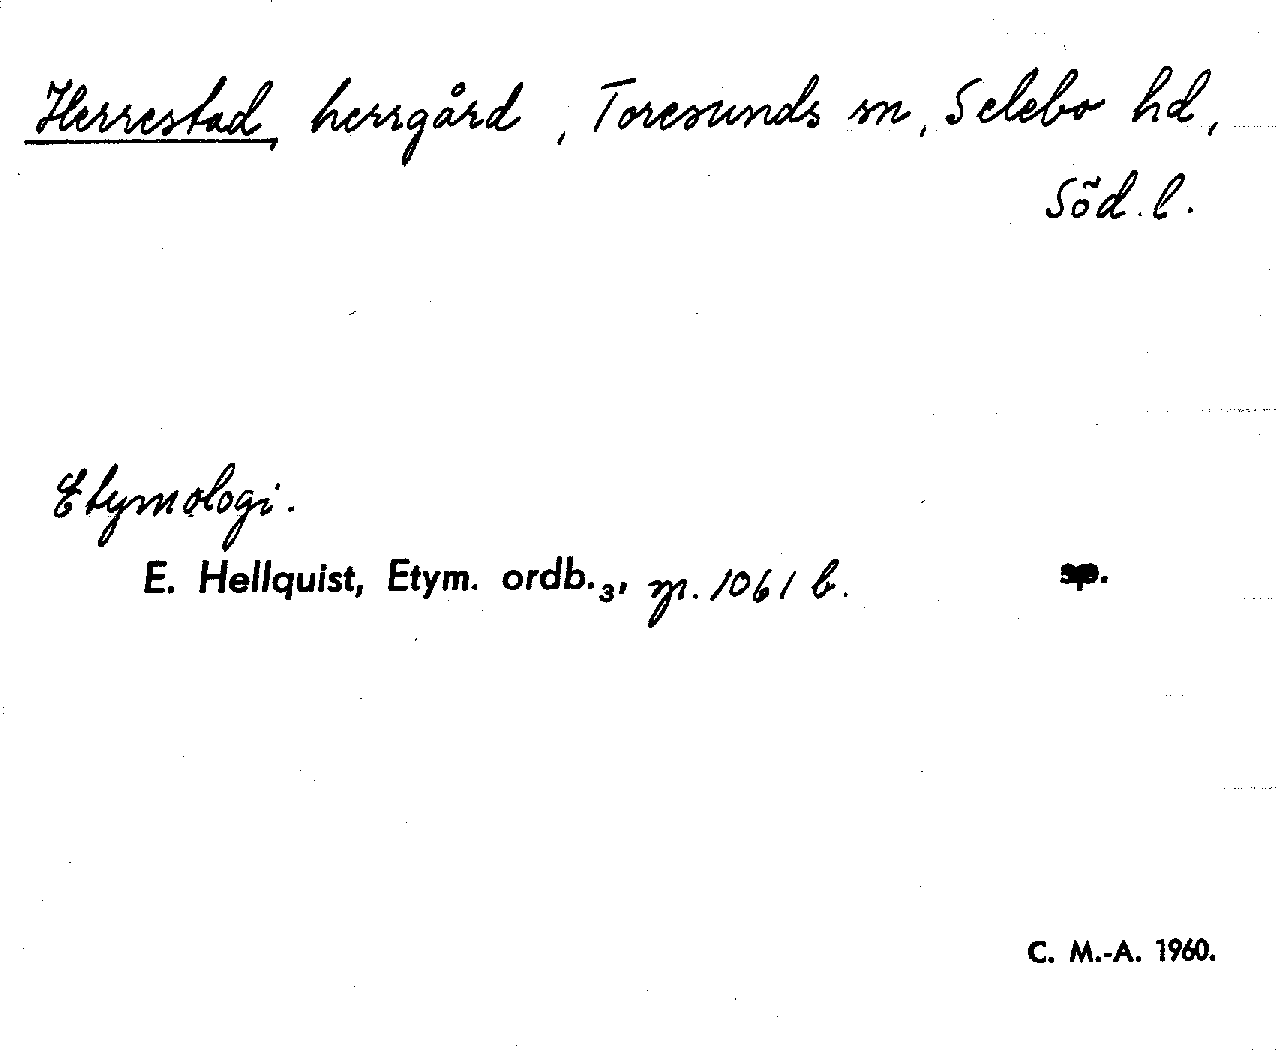 Herrestad, herrgård, Toresunds sn, Selebo hd,
Söd. l.
Etymologi.
E. Hellquist, Etym. ordb.₃, p. 1061 b. sp.
C. M.-A. 1960.